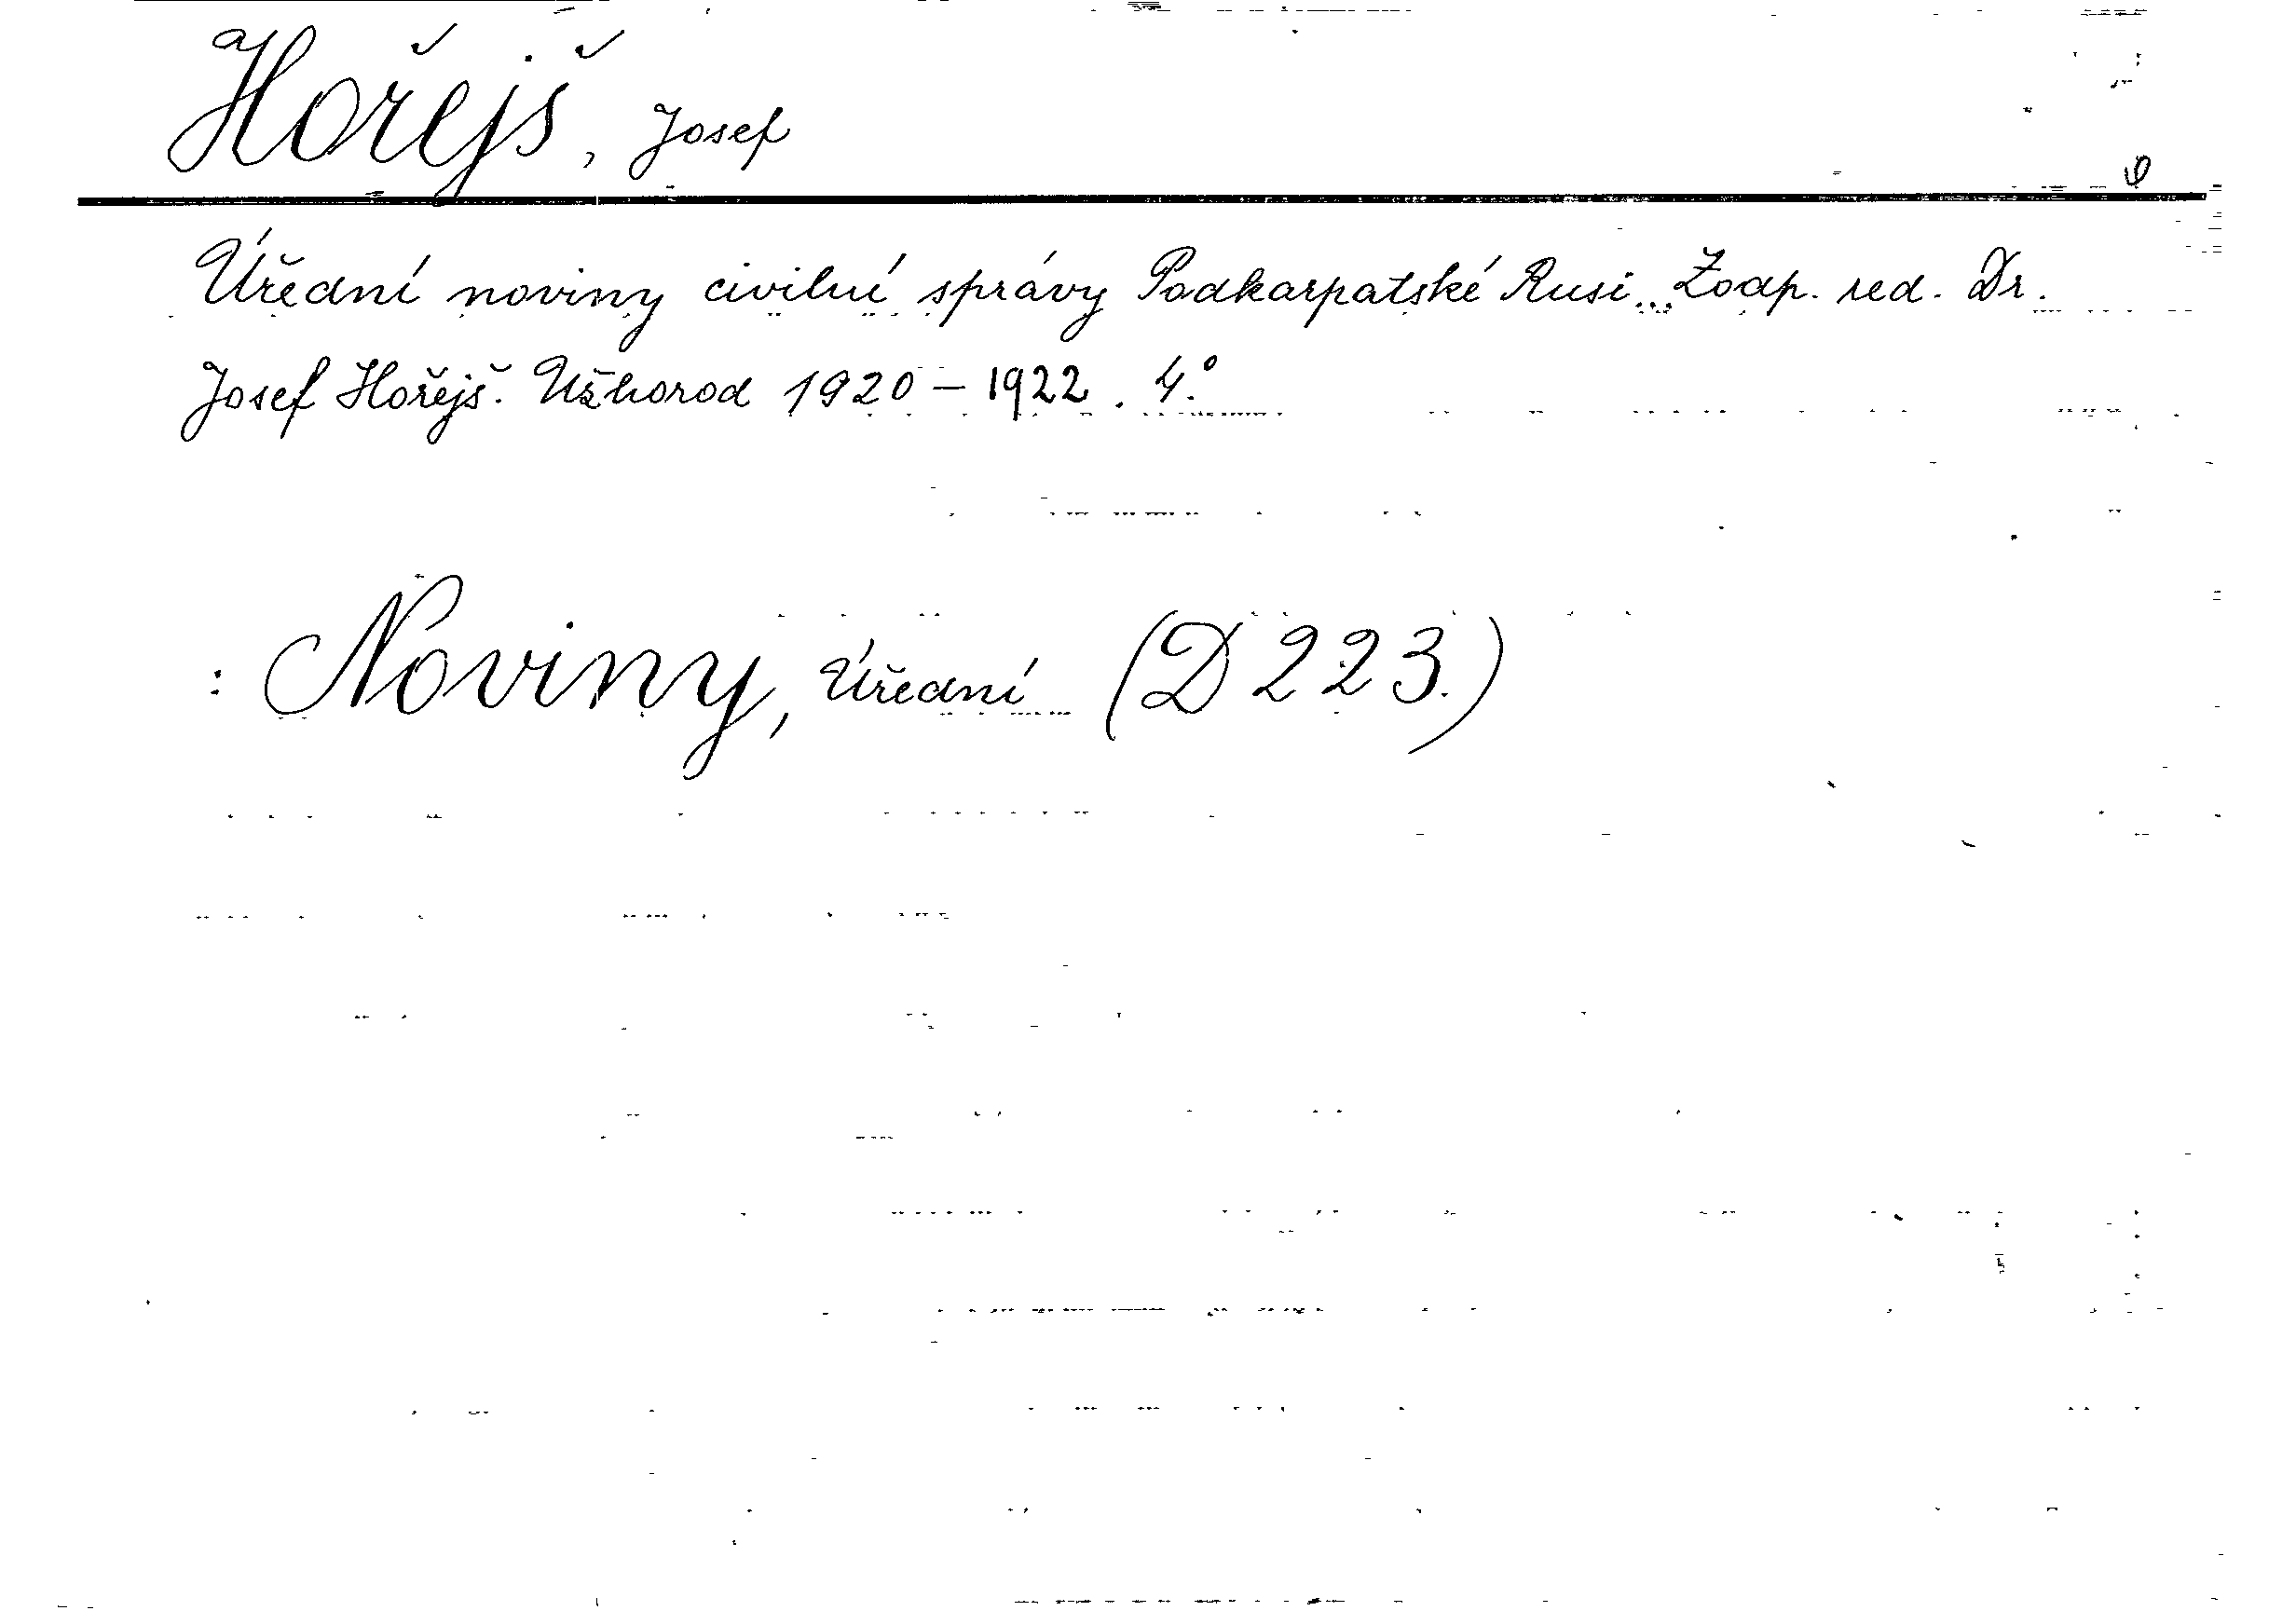 Hořejš, Josef
Úřední noviny civilní správy Podkarpatské Rusi... Zodp. red. Dr.
Josef Hořejš. Užhorod 1920-1922. 4.°
: Noviny, Úřední (D 223.)